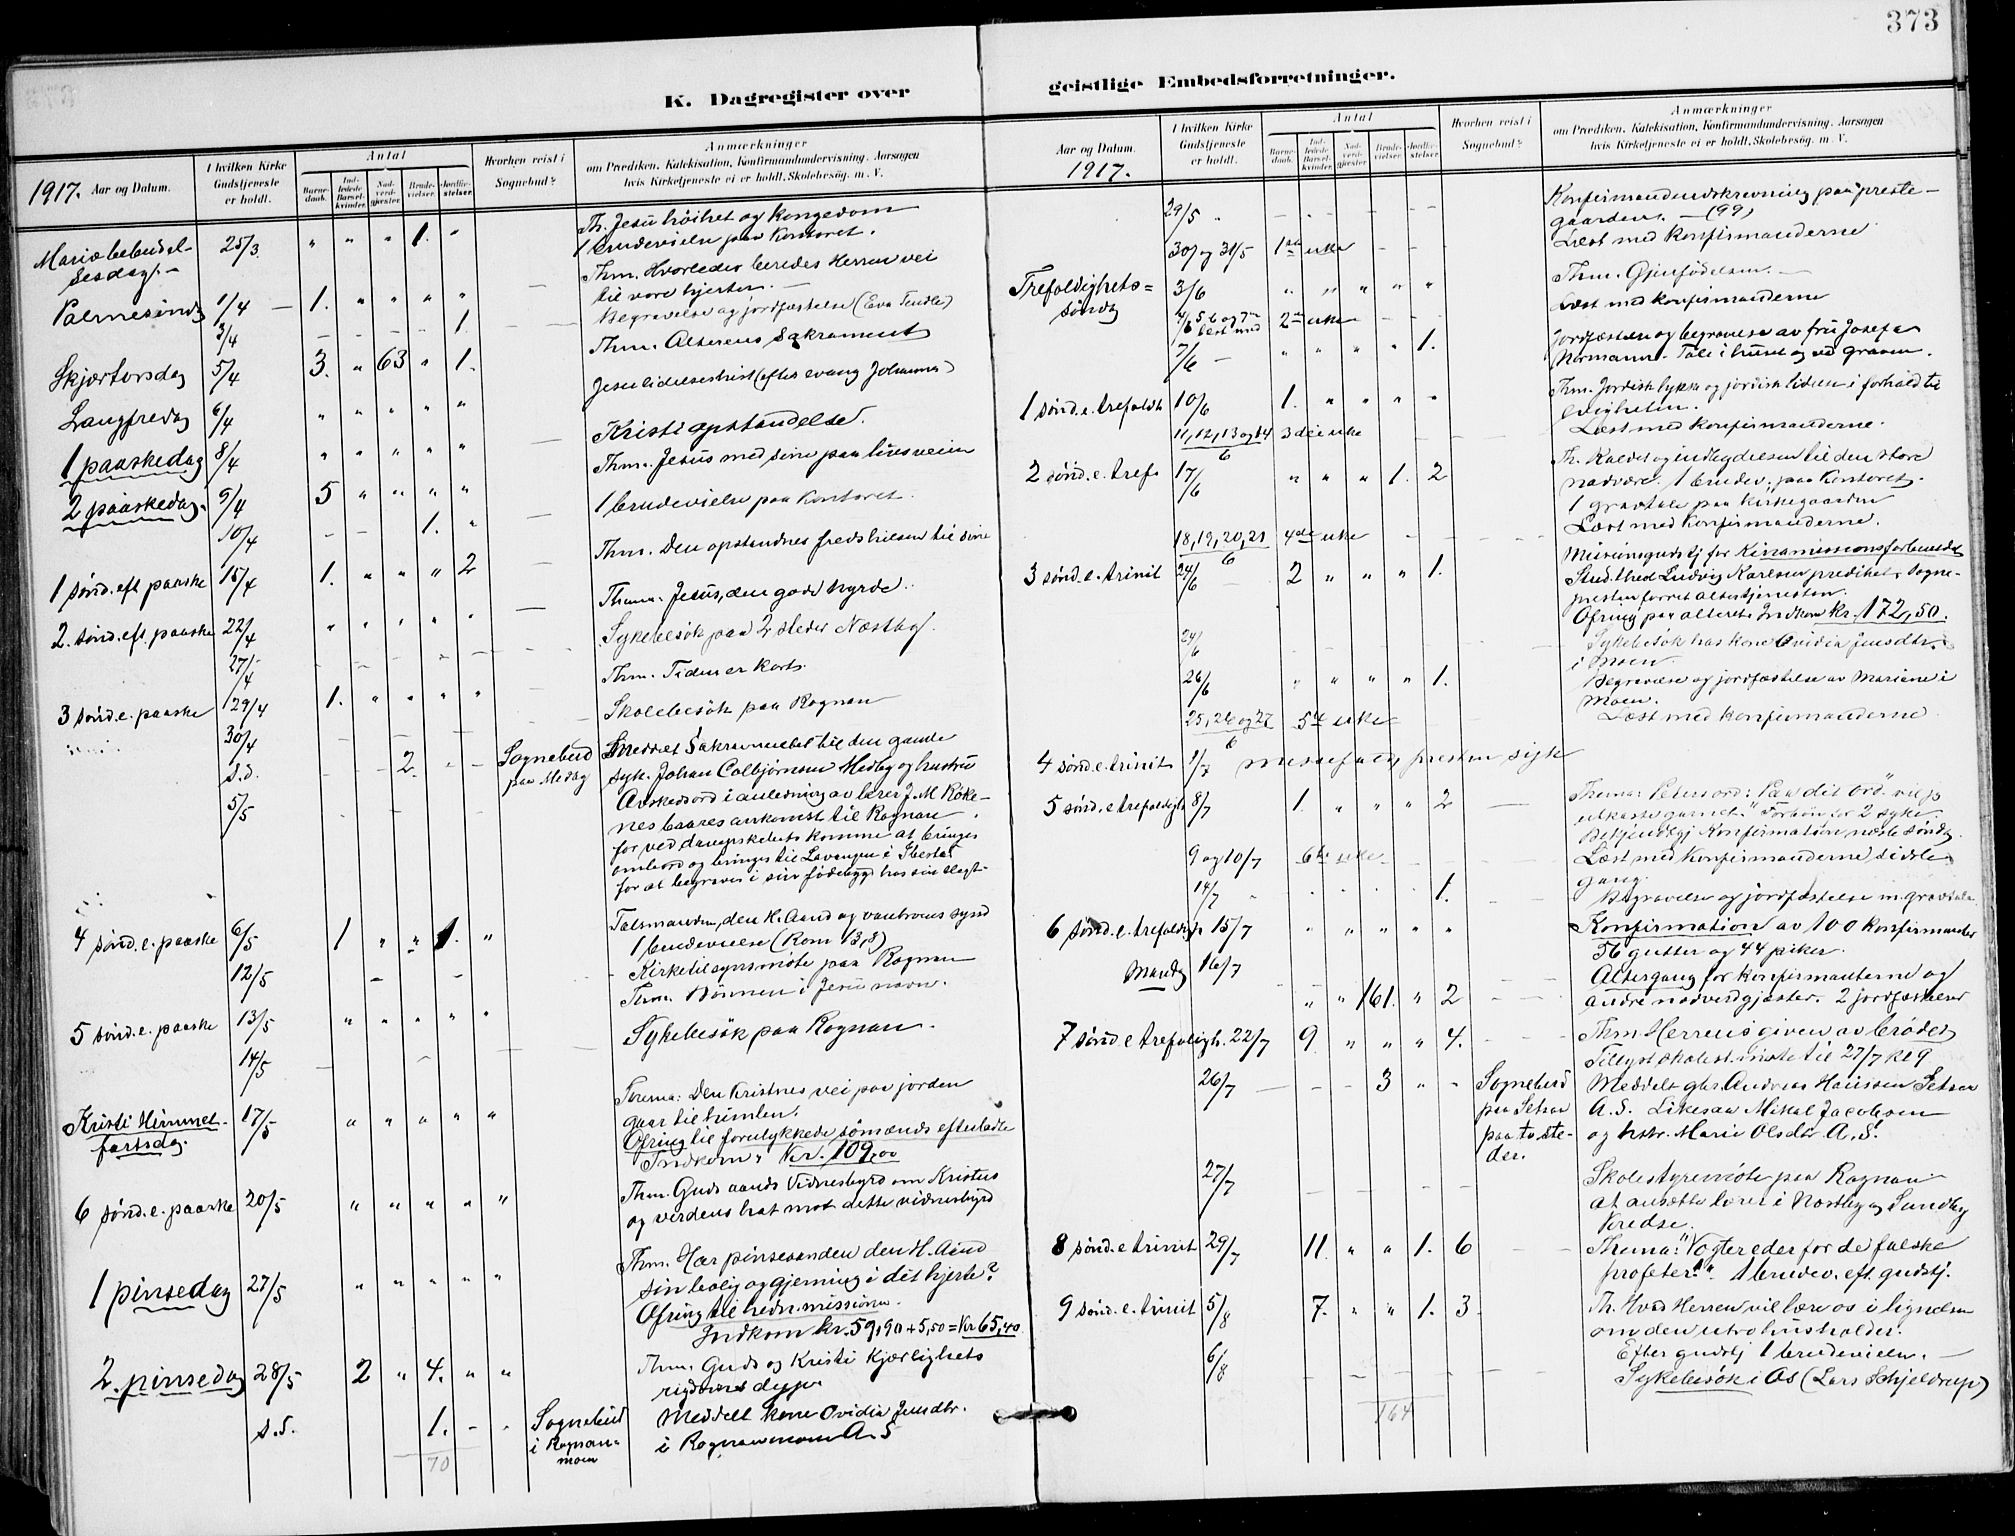 373
K. Dagregister over
geistlige Embedsforretninger.
1917. Aar og Datum.
I hvilken Kirke Gudstjeneste er holdt.
Antal
Barnedaab.
Indledede Barselkvinder.
Nadverdgjester.
Brudevielser.
Jordfæstelser.
Hvorhen reist i Sognebud?
Anmærkninger
om Prædiken, Katekisation, Konfirmandundervisning, Aarsagen
hvis Kirketjeneste ei er holdt, Skolebesøg. m. V.
Mariæ bebudelsesdag. 25/3 " " " 1. " Th. Jesu høihet og kongedom
1 brudevielse paa Kontoret.
Palmesønd 1/4 1. " " " " Thm. Hvorledes beredes Herren vei
til vore hjerter.
3/4 1. Begravelse og jordfæstelse (Eva Tendle)
Skjærtorsdag 5/4 3. " 63 " 1. Thm. Alterens Sakrament
Langfredag 6/4 " " " " " Jesu lidelseshist (efter evang Johannes)
1 paaskedag 8/4 " " " " " Kristi opstandelse.
2 paaskedag. 9/4 5 " " " " Thm. Jesus med sine paa livsveien
10/4 1. " 1 brudevielse paa Kontoret.
1 sønd. eft paaske 15/4 1. " " " 2 Thm. Den opstandnes fredshilsen til sine
2. sønd. eft. paaske 22/4 " " " " " Thema: Jesus, den gode hyrde.
27/4 Sykebesøk paa 2 steder Næstby.
3 sønd. e. paaske 29/4 1. " " " " Thm. Tiden er kort.
30/4 Skolebesøk paa Rognan
s.d. 2. Sognebud paa Medby Meddelt Sakramentet til den gamle
syk. Johan Colbjørnsen Medby og hustru
5/5 Avskedsord i anledning av lærer J. M. Røke-
nes baares ankomst til Rognan
for ved dampskibets komme at bringes
ombord og bringes til Lavangen i Ibestad
for at begraves i sin fødebygd hos sin slegt.
4 sønd. e. paaske 6/5 1 " " 1. " Talsmanden, den H. Aand og vantroens synd
1 brudevielse (Rom 13,8)
12/5 Kirketilsynsmøte paa Rognan
5 sønd. e. paaske 13/5 " " " " " Thema. Bønnen i Jesu navn.
14/5 Sykebesøk paa Rognan.
Kristi Himmelfartsdag. 17/5 " " " " " Tema: Den kristnes vei paa jorden
gaar til himlen.
Ofring til forulykkede sømænds efterladte
Indkom: Kr. 109,00
6 sønd. e. paaske 20/5 " " " " " Thm. Guds aands Vidnesbyrd om Kristus
og verdens hat mot dette vidnesbyrd
1 pinsedag 27/5 " " " " " Thm. Har pinseaanden den H. Aand
sin bolig og gjerning i dit hjerte?
Ofring til hedn. missionen.
Indkom kr. 59,90 + 5,50 = Kr 65,40
2. pinsedag 28/5 2 " 4. " " Thm. Guds og Kristi Kjærlighets
rigdoms dype
s.d. 1. Sognebud i Rognan-moen Meddelt Kone Ovidia Jensdtr.
i Rognanmoen A. S
70
Aar og Datum.
1917.
I hvilken Kirke Gudstjeneste er holdt.
Antal
Barnedaab.
Indledede Barselkvinder.
Nadverdgjester.
Brudevielser.
Jordfæstelser.
Hvorhen reist i Sognebud?
Anmærkninger
om Prædiken, Katekisation, Konfirmandundervisning, Aarsagen
hvis Kirketjeneste ei er holdt, Skolebesøg. m. V.
29/5 Konfirmandindskrivning paa preste-
gaarden. — (99)
30 og 31/5 1ste uke Læst med konfirmanderne
Trefoldighets= søndag 3/6 " " " " " Thm. Gjenfødelsen.
4/6 5 6 og 7de læst med 2den uke Læst med konfirmanderne
7/6 " " " " 1. Jordfæstelse og begravelse av fru Josefa
Normann. Tale i huset og ved graven.
1 sønd. e. trefoldh 10/6 1. " " " " Thm. Jordisk lykke og jordisk liden i forhold til
evigheten.
11, 12, 13 og 14 / 6 3die uke Læst med konfirmanderne.
2 sønd. e. tref 17/6 " " " 1. 2 Th. Kaldet og indbydelsen til den store
nadvere. 1 brudev. paa Kontoret.
1 gravtale paa Kirkegaarden
18, 19, 20, 21 / 6 4de uke Læst med konfirmanderne.
3 sønd. e. trinit 24/6 2 " " " 1. Missionsgudstj for Kinamissionsforbundet
Stud. theol Ludvig Karlsen prediket, Sogne-
presten forret altertjenesten.
Ofring paa alteret. Indkom kr. 172,50.
24/6 Sykebesøk hos kone Ovidia Jensdtr.
i Moen
26/6 " " " " 1. Begravelse og jordfæstelse av Mariane i
Moen.
25, 26 og 27 / 6 5te uke Læst med konfirmanderne
4 sønd. e. trinit 1/7 Messefald, presten syk
5 sønd. e trefoldigh 8/7 1. " " " 2 Thema: Peters ord: Paa dit ord vil jeg
utkaste garnet." Forbøn for 2 syke.
Bekjendtgj Konfirmation næste søndag.
9 og 10/7 6te uke Læst med Konfirmanderne sidste
gang.
14/7 1. Begravelse og jordfæstelse m. gravtale
6 sønd. e. trefoldigh 15/7 " " " " " Konfirmation av 100 konfirmander
56 gutter og 44 piker.
Mandag 16/7 " " 161. " 2 Altergang for konfirmanterne og
andre nadverdgjæster. 2 jordfæstelser
7 sønd. e trefoldigh. 22/7 9 " " " 4. Thm Herrens given av brødet
Tillyst skolest. møte til 27/7 kl 9
26/7 3 " Sognebud paa Setsaa paa to ste-der. Meddelt gbr. Andreas Hansen Setsaa
A. S. Likesaa Mikal Jacobsen
og hstr. Marie Olsdtr A. S.
27/7 Skolestyremøte paa Rognan
at ansætte lærer i Næstby og Sundby
Kredse.
8 sønd. e trinit 29/7 11. " " 1. 6 Thema: "Vogter eder for de falske
profeter." 1 brudev. eft. gudstj.
9 sønd. e. trinit 5/8 7. " " 1. 3 Th. Hvad Herren vil lære os i lignelsen
om den utro husholder.
Efter gudstj 1 brudevielse.
6/8 Sykebesøk i Os (Lars Schjeldrup)
164